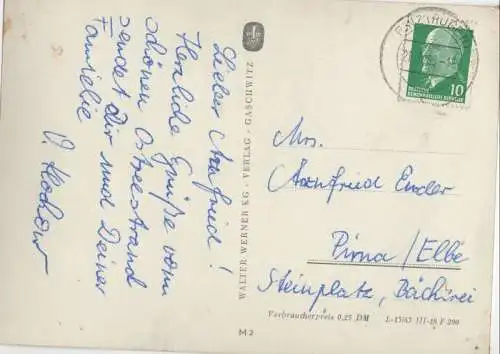 Lieber Arnfried!
Herzliche Grüße vom
schönen Ostseestrand
sendet Dir und Deiner
Familie
WALTER WERNER KG · VERLAG · GASCHWITZ
M 2
DEUTSCHE
DEMOKRATISCHE REPUBLIK
10
Arnfried Ender
Pirna / Elbe
Steinplatz, Bäckerei
Verbraucherpreis 0,25 DM L-15/65 III-18